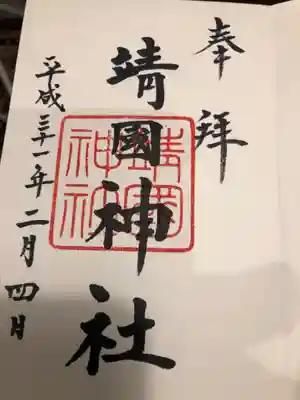 奉拝
靖國神社
靖國神社
平成三十一年二月四月